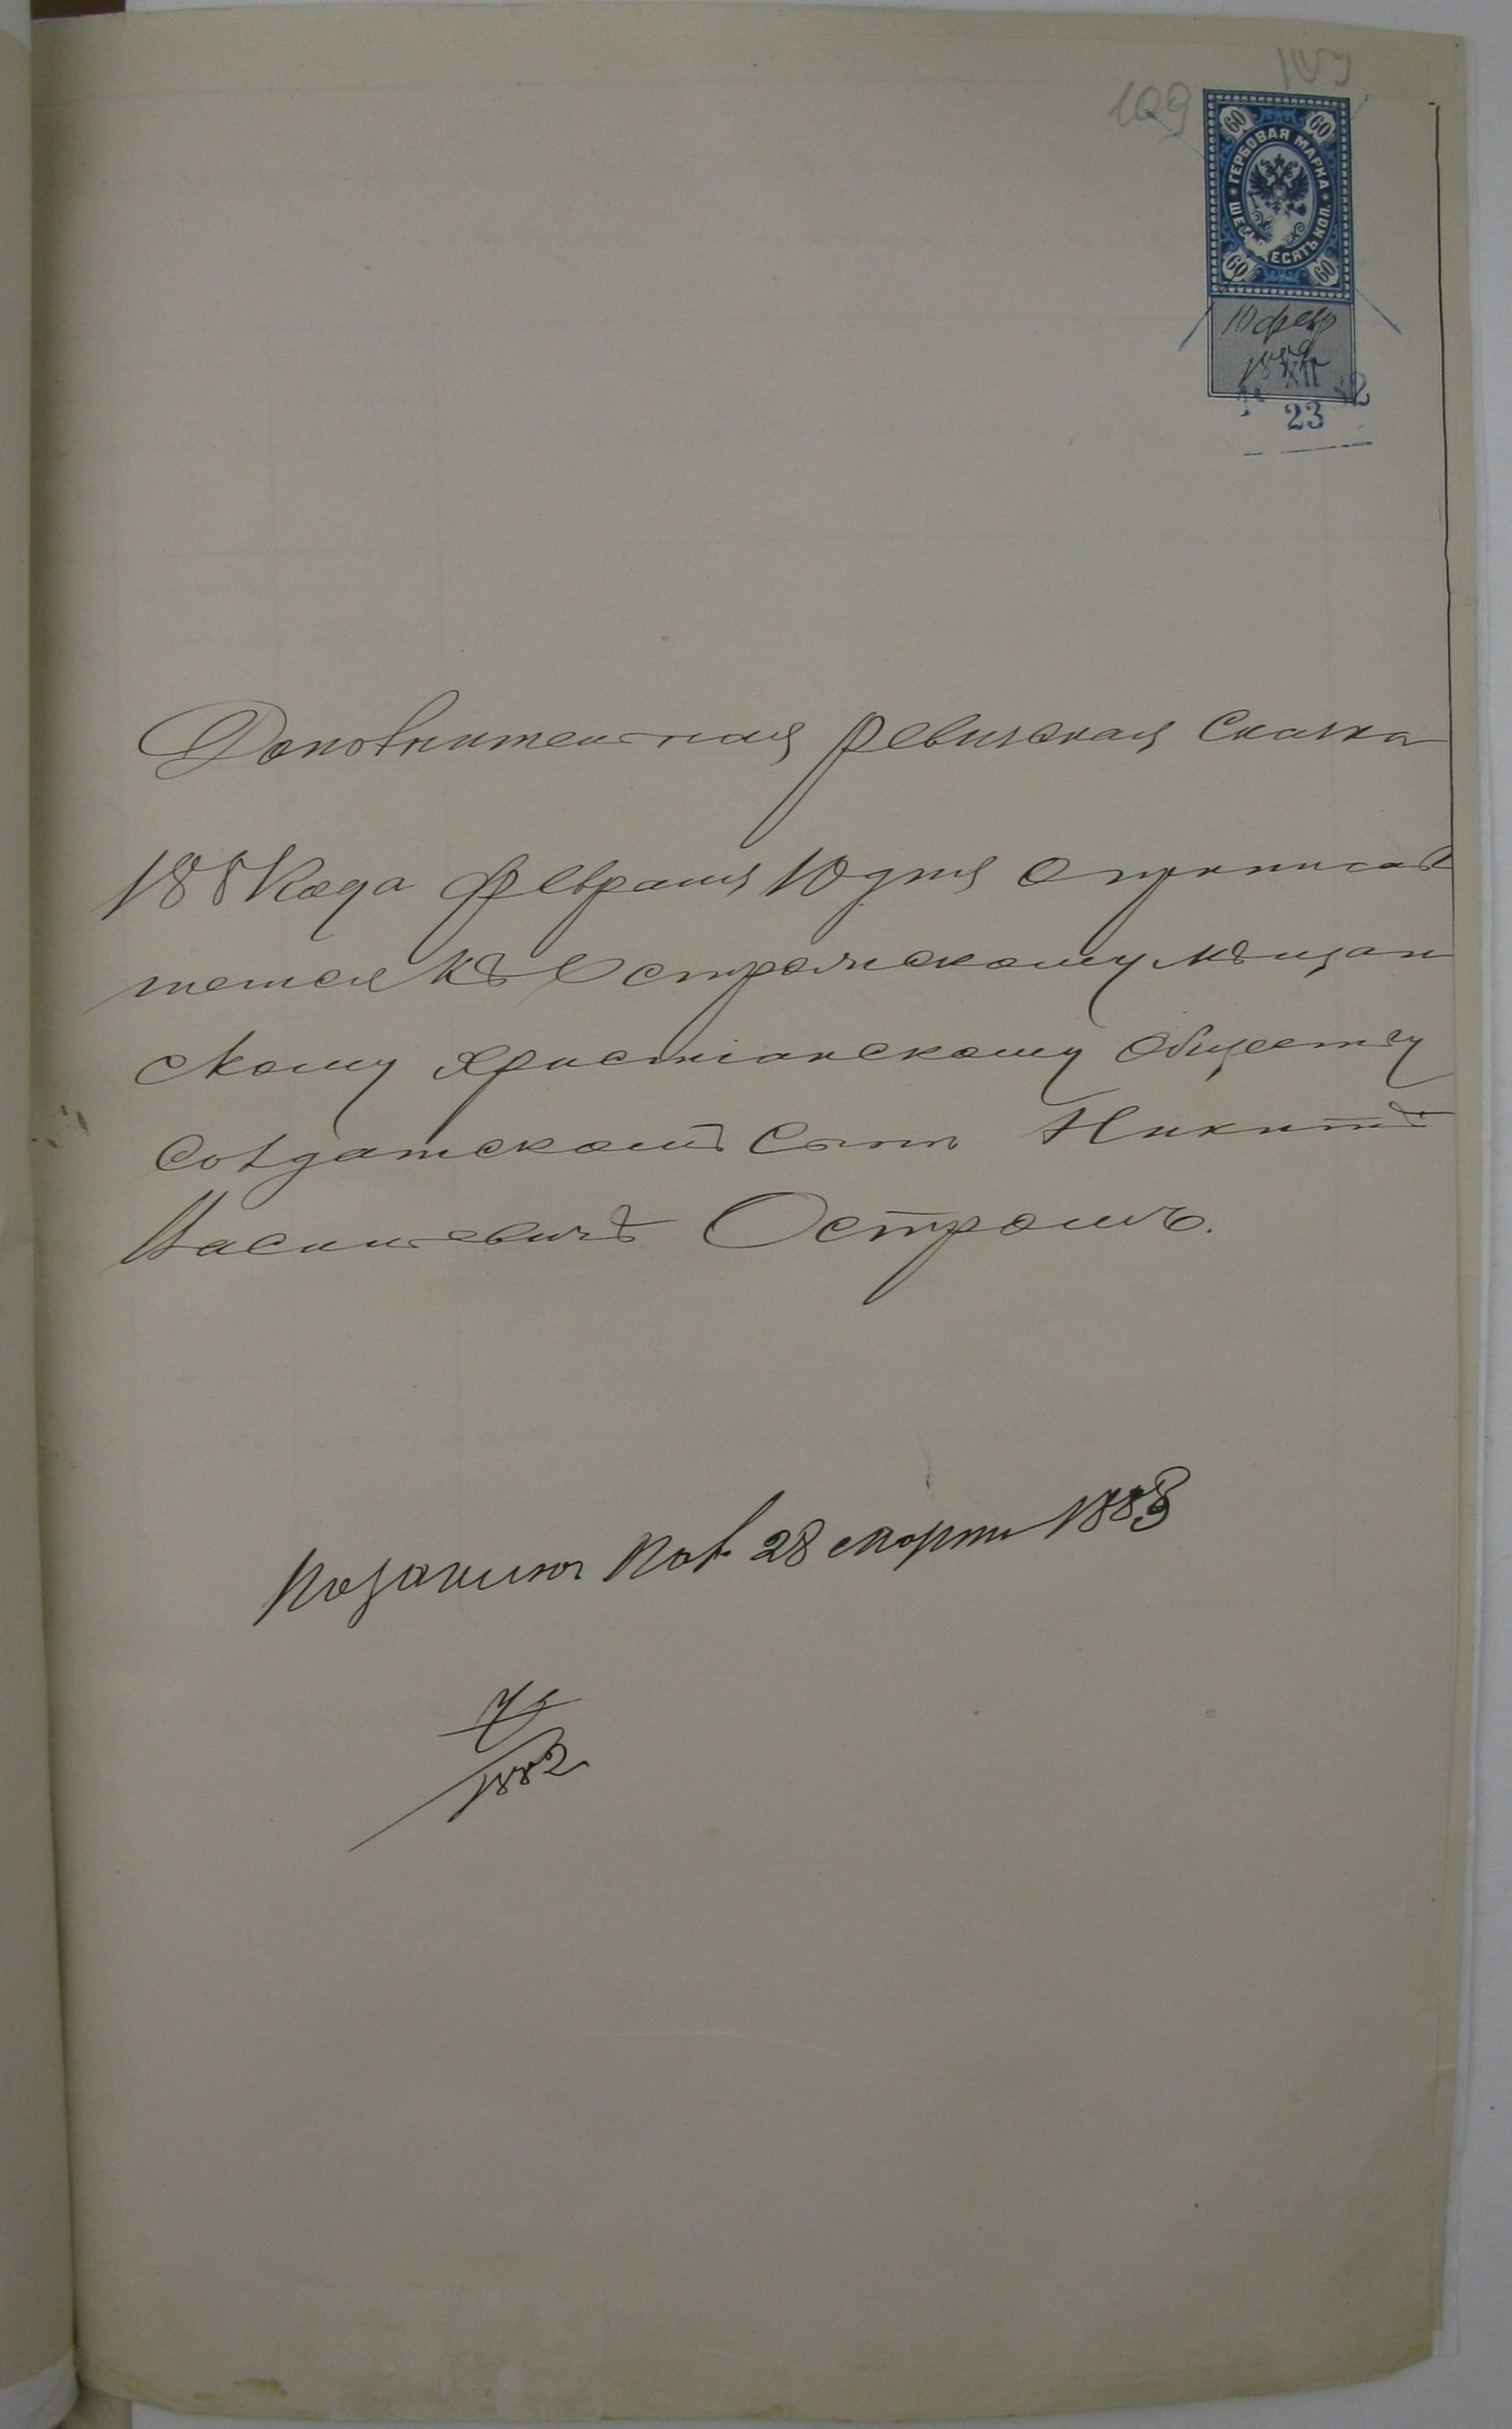 109
109
60 60
ГЕРБОВАЯ МАРКА
ШЕС ЕСЯТЬ КОП.
60 60
10 февр
XII
23
Дополнительная ревизская Сказка
188 года февраля 10 дня о приписав
шемся къ Острожскому мѣщан
скому христіанскому обществу
Солдатскомъ Сынѣ Никитѣ
Васильевичѣ
28 марта 1883
1882